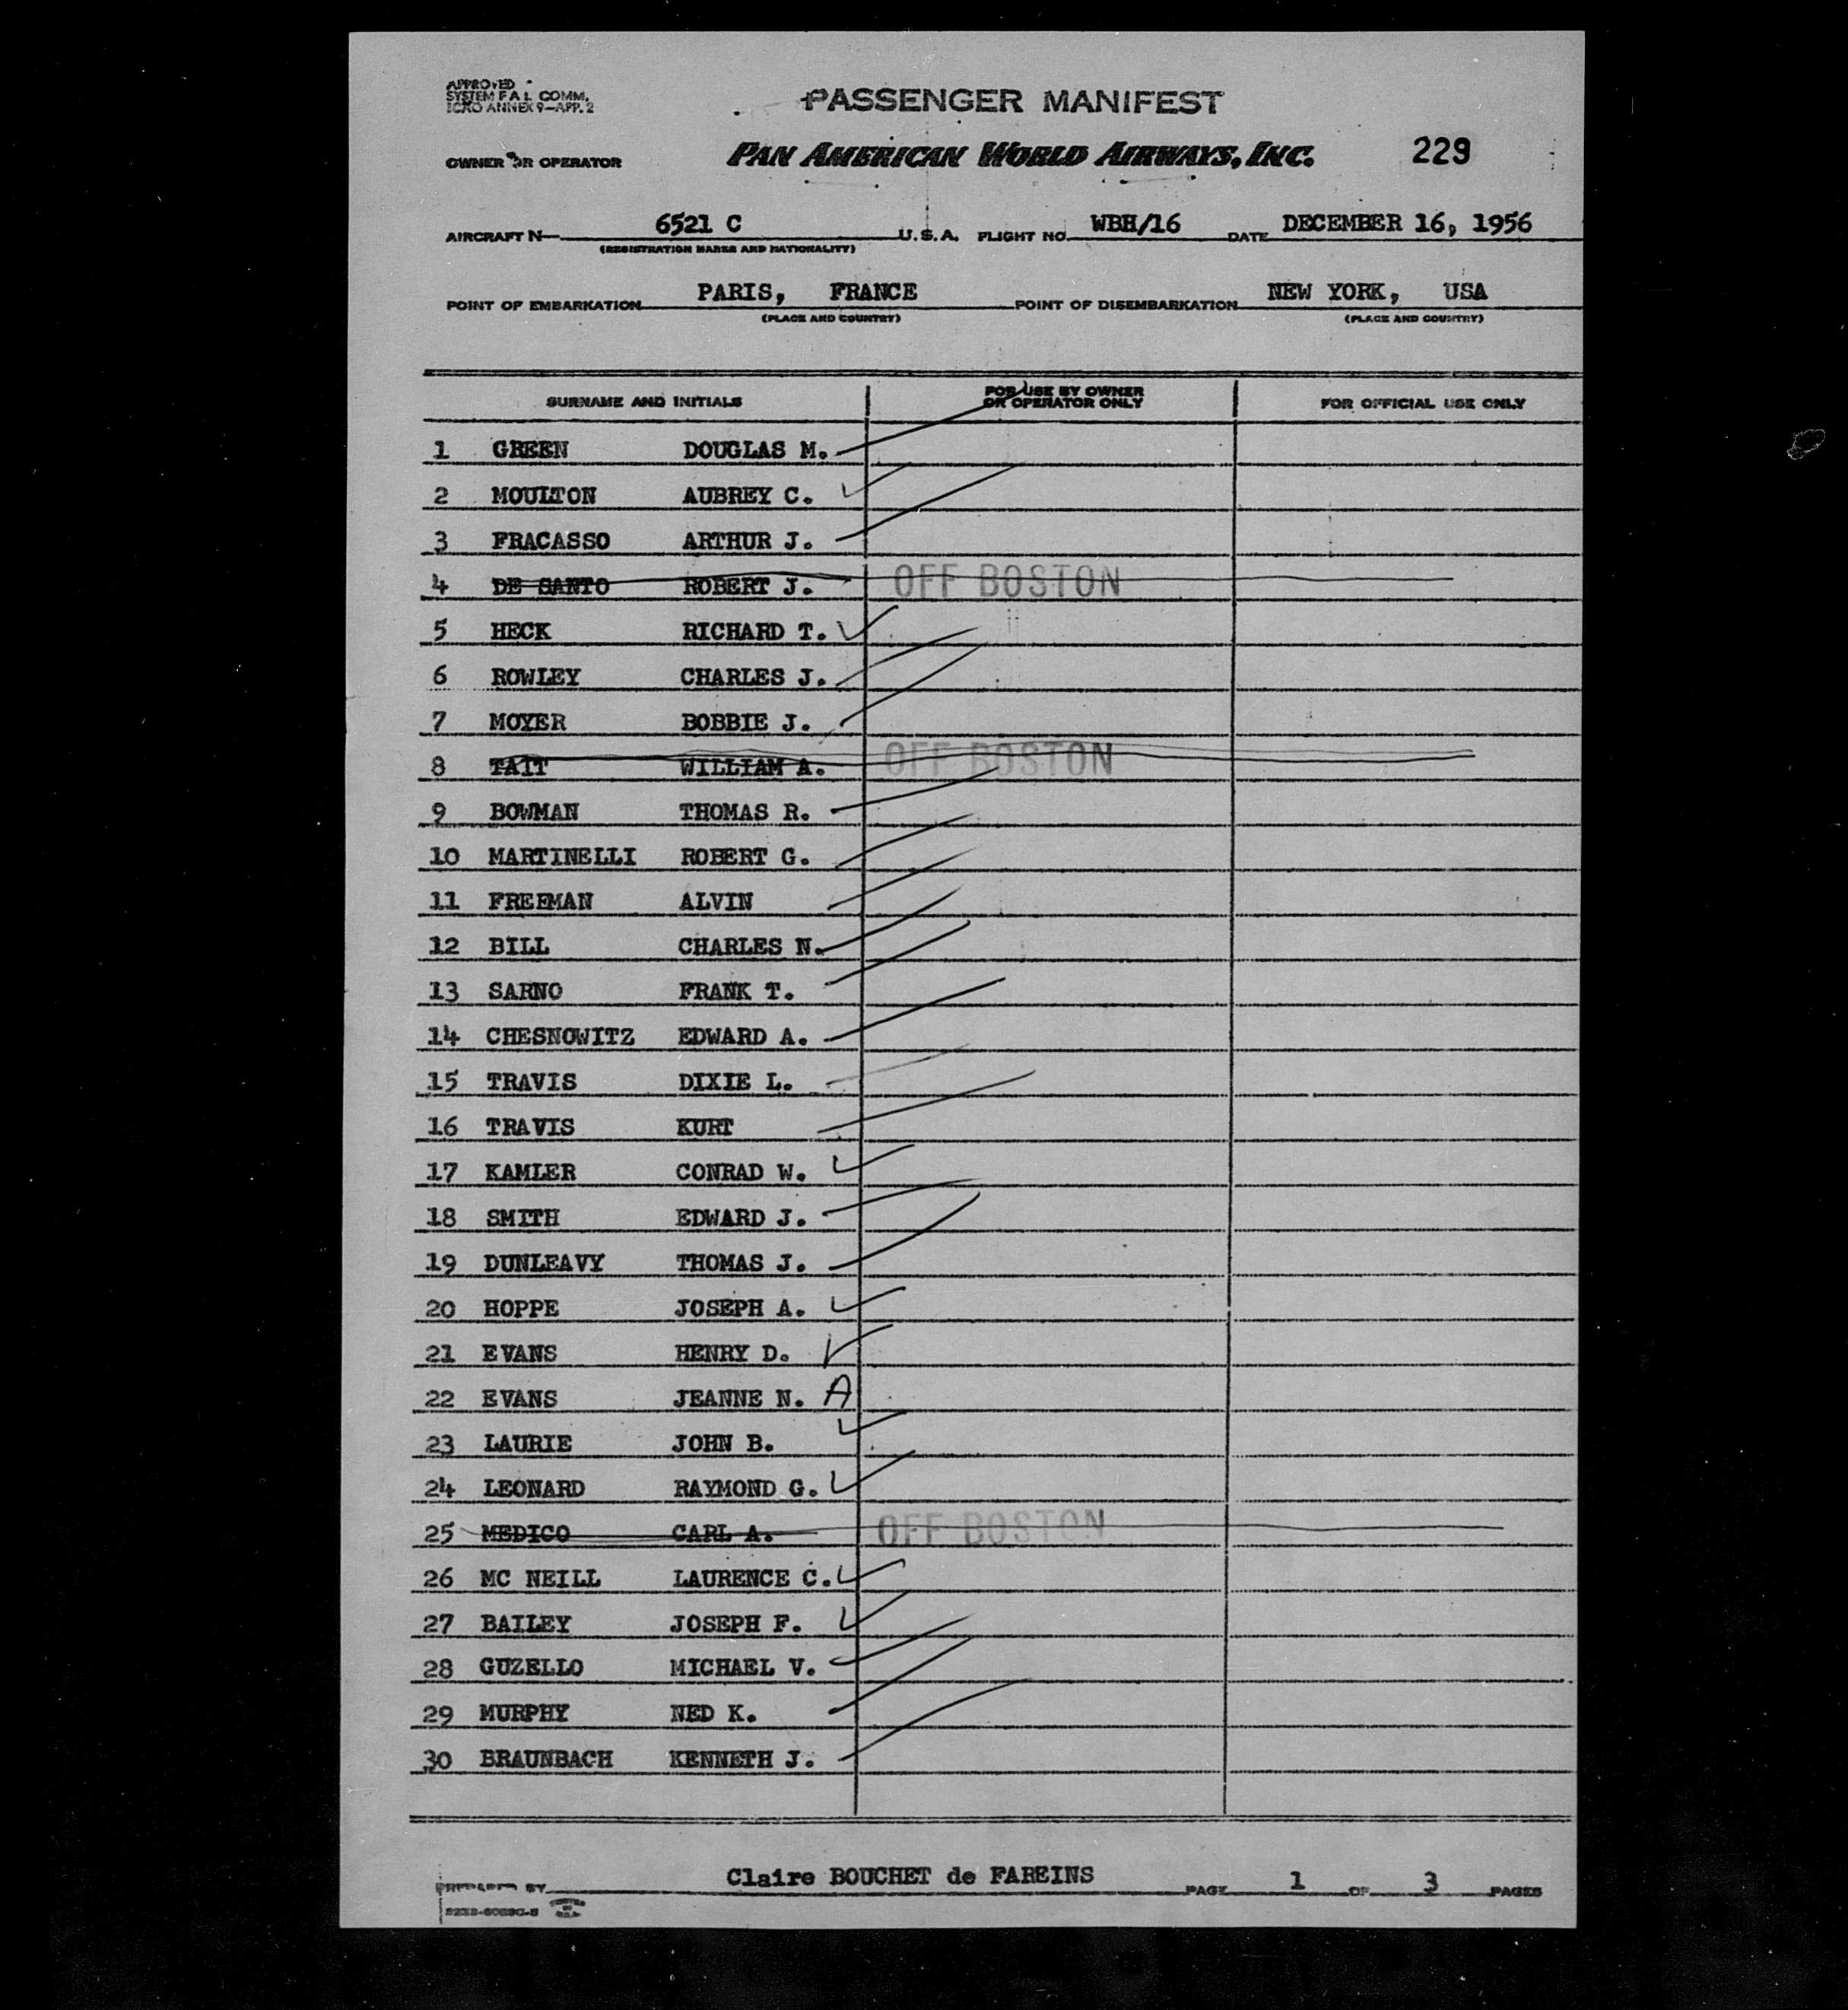 APPROVED
SYSTEM F A L COMM.
ICAO ANNEX 9—APP. 2
PASSENGER MANIFEST
OWNER OR OPERATOR PAN AMERICAN WORLD AIRWAYS, INC. 229
AIRCRAFT N— 6521 C U.S.A. FLIGHT NO. WBH/16 DATE DECEMBER 16, 1956
(REGISTRATION MARKS AND NATIONALITY)
POINT OF EMBARKATION PARIS, FRANCE POINT OF DISEMBARKATION NEW YORK, USA
(PLACE AND COUNTRY) (PLACE AND COUNTRY)
SURNAME AND INITIALS FOR USE BY OWNER OR OPERATOR ONLY FOR OFFICIAL USE ONLY
1 GREEN DOUGLAS M.
2 MOULTON AUBREY C.
3 FRACASSO ARTHUR J.
4 DE SANTO ROBERT J. OFF BOSTON
5 HECK RICHARD T.
6 ROWLEY CHARLES J.
7 MOYER BOBBIE J.
8 TAIT WILLIAM A. OFF BOSTON
9 BOWMAN THOMAS R.
10 MARTINELLI ROBERT G.
11 FREEMAN ALVIN
12 BILL CHARLES N.
13 SARNO FRANK T.
14 CHESNOWITZ EDWARD A.
15 TRAVIS DIXIE L.
16 TRAVIS KURT
17 KAMLER CONRAD W.
18 SMITH EDWARD J.
19 DUNLEAVY THOMAS J.
20 HOPPE JOSEPH A.
21 EVANS HENRY D.
22 EVANS JEANNE N. A
23 LAURIE JOHN B.
24 LEONARD RAYMOND G.
25 MEDICO CARL A. OFF BOSTON
26 MC NEILL LAURENCE C.
27 BAILEY JOSEPH F.
28 GUZELLO MICHAEL V.
29 MURPHY NED K.
30 BRAUNBACH KENNETH J.
PREPARED BY Claire BOUCHET de FAREINS PAGE 1 OF 3 PAGES